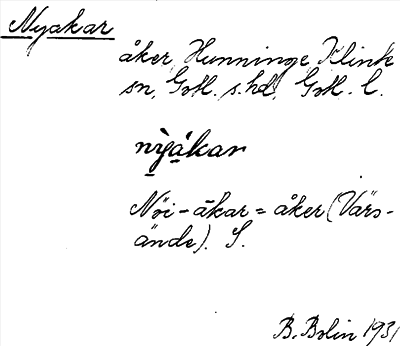 Nyakar
åker, Hunninge, Klinte
sn, Gotl. s. hd, Gotl. l.
nỳákar
Nöi-åkar = åker (Värs-
ände). S.
B. Bolin 1931